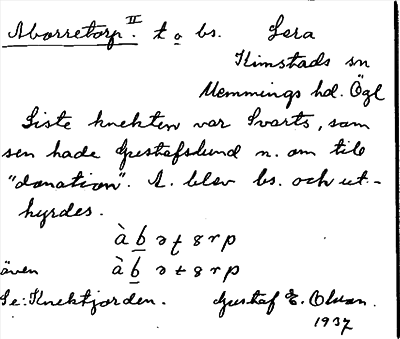 Aborretorp. II t o bs. Lera
Kimstads sn
Memmings hd. Ögl
Siste knekten var Svarts, som
sen hade Gustafslund n. om till
"donation". A. blev bs. och ut-
hyrdes.
à b ə t 8 r p
även à b ə t 8 r p
Se: Knektjorden. Gustaf E. Olsson.
1937